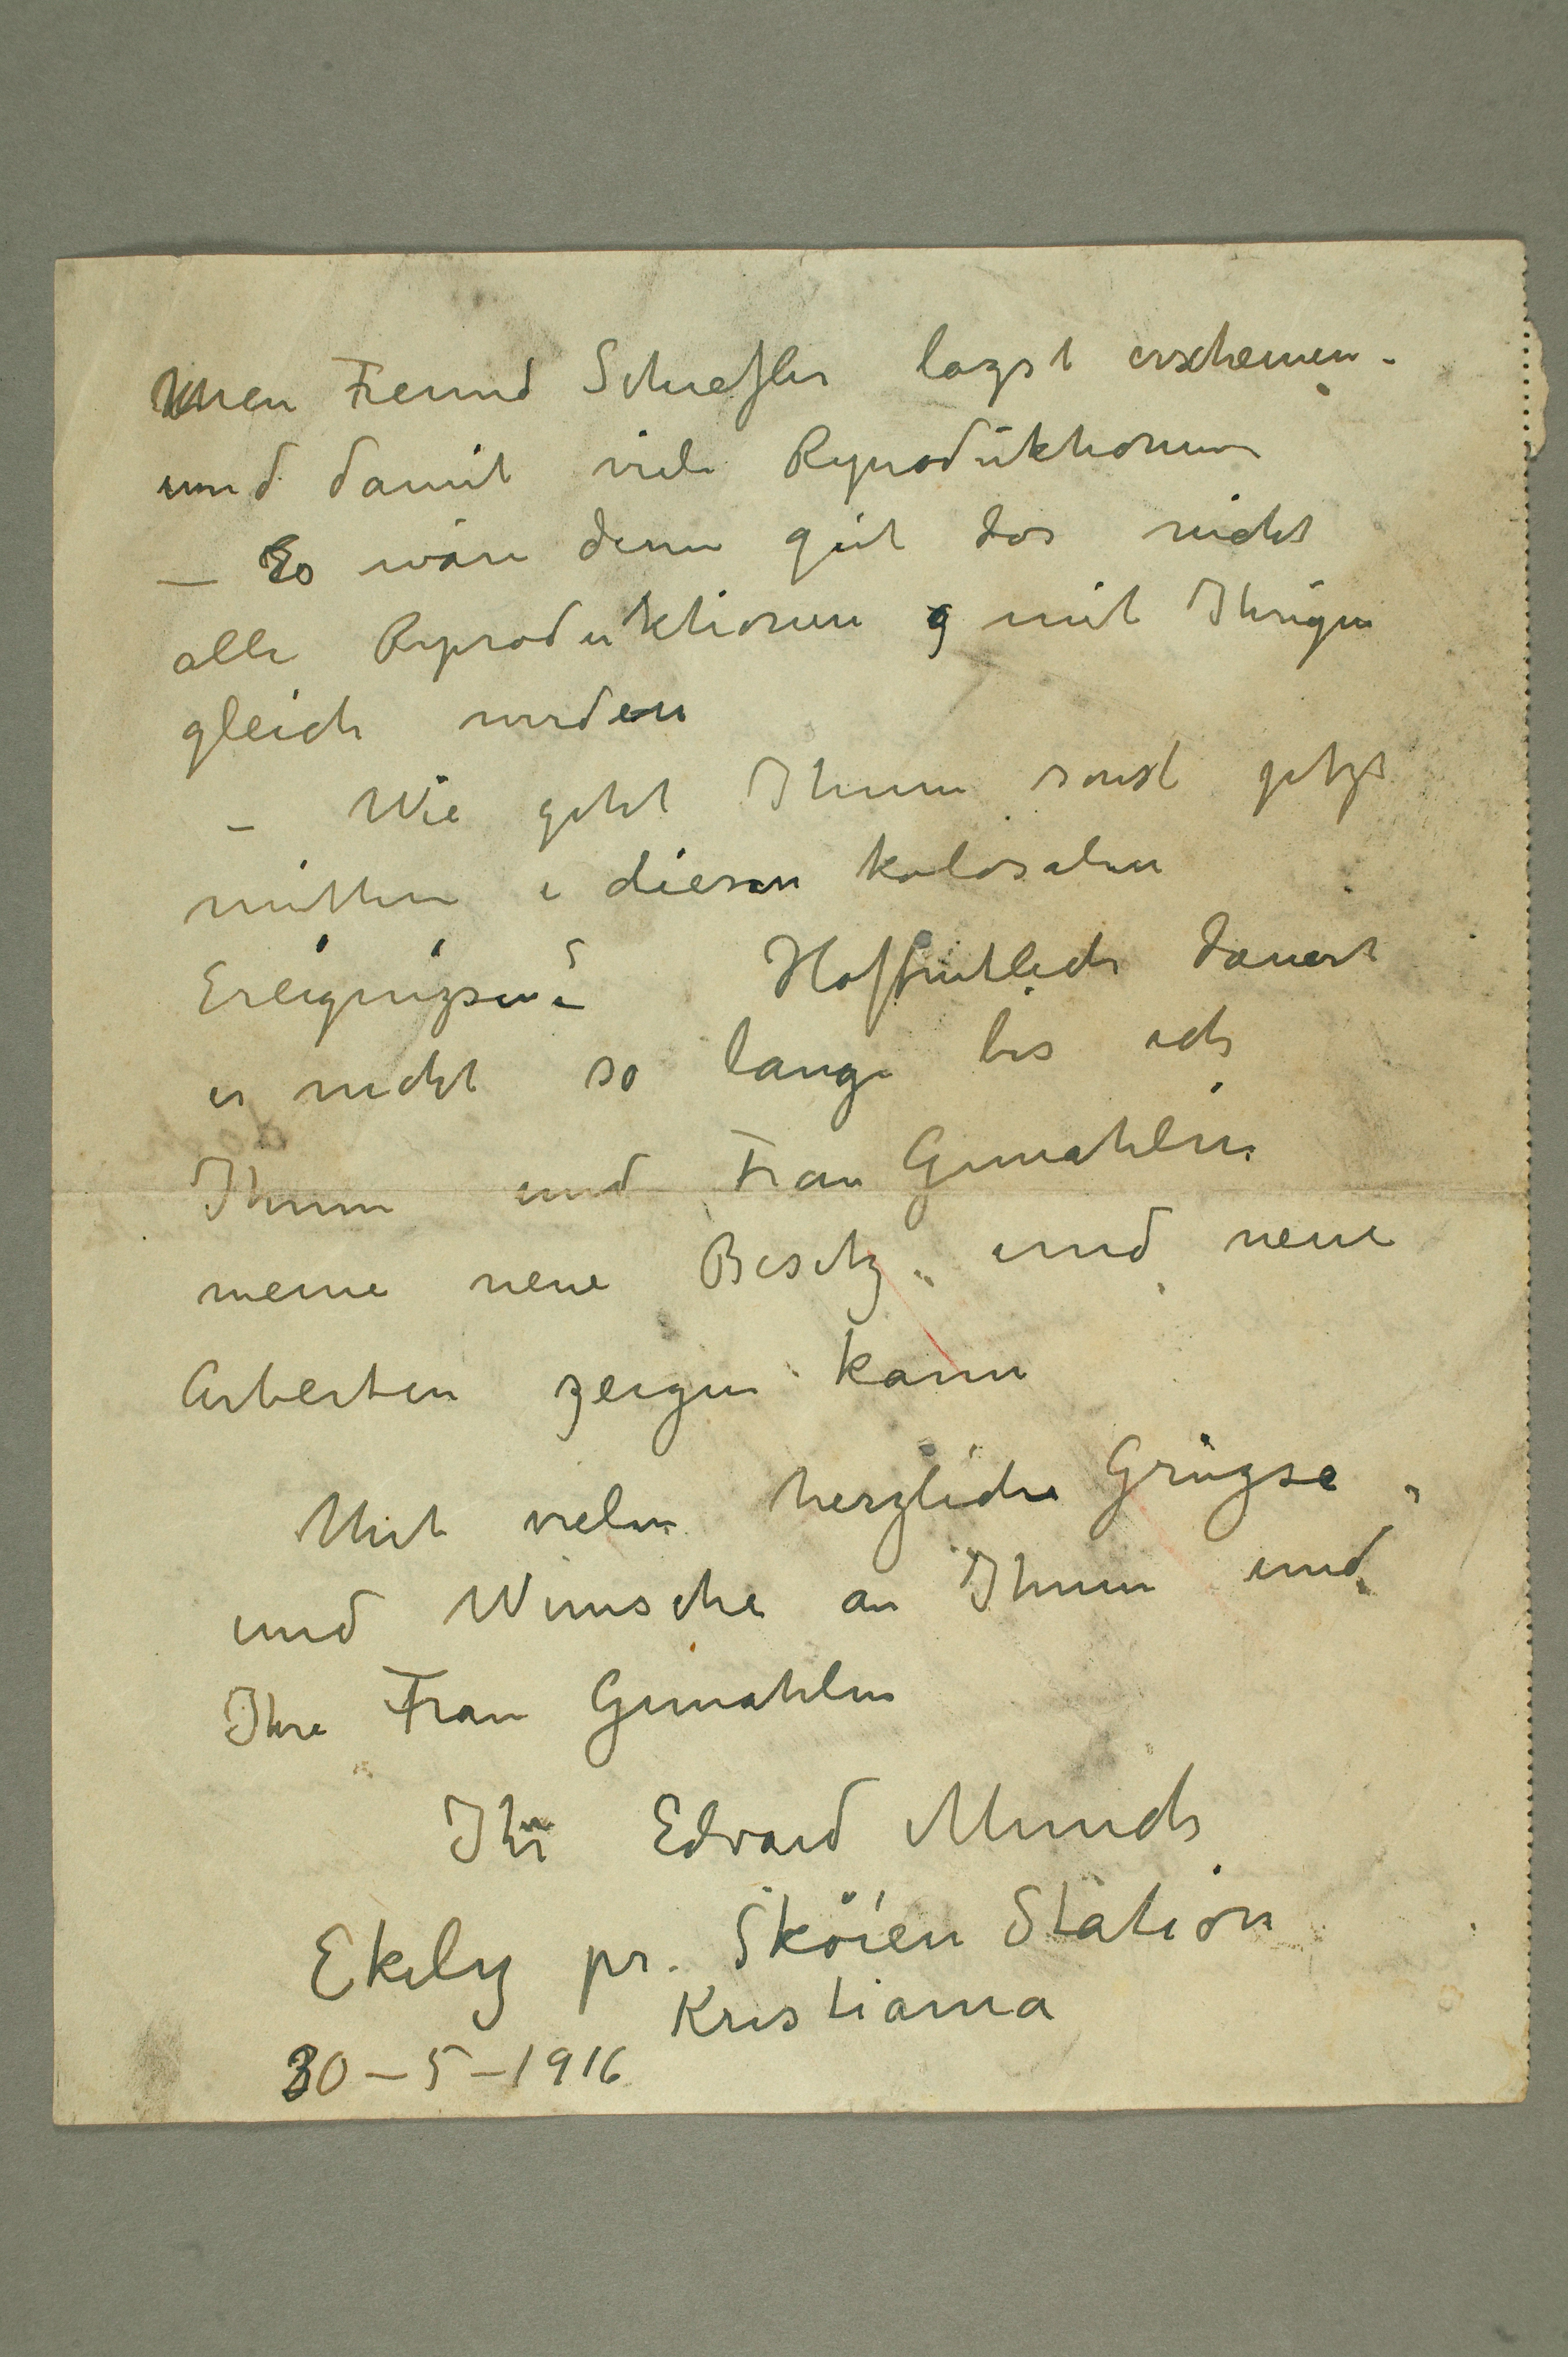 Mein Freund Schiefler lazst erscheinen -
und damit viele Reproduktionen
— Es wäre denn gut das nicht
alle Reproduktionen mit Ihrigen
gleich werden
– Wie geht Ihnen sonst jetzt
mitten i diesen kolosalen
Ereignizsen? Hoffentlich dauert
es nicht so lange bis ich
Ihnen und Frau Gemahlin
meine neue Besitz und neue
Arbeiten zeigen kann
Mit vielen herzliche Grüzse
und Wünsche an Ihnen und
Ihre Frau Gemahlin
Ihr Edvard Munch
Ekely pr. Sköien Station
Kristiania
30 – 5 – 1916